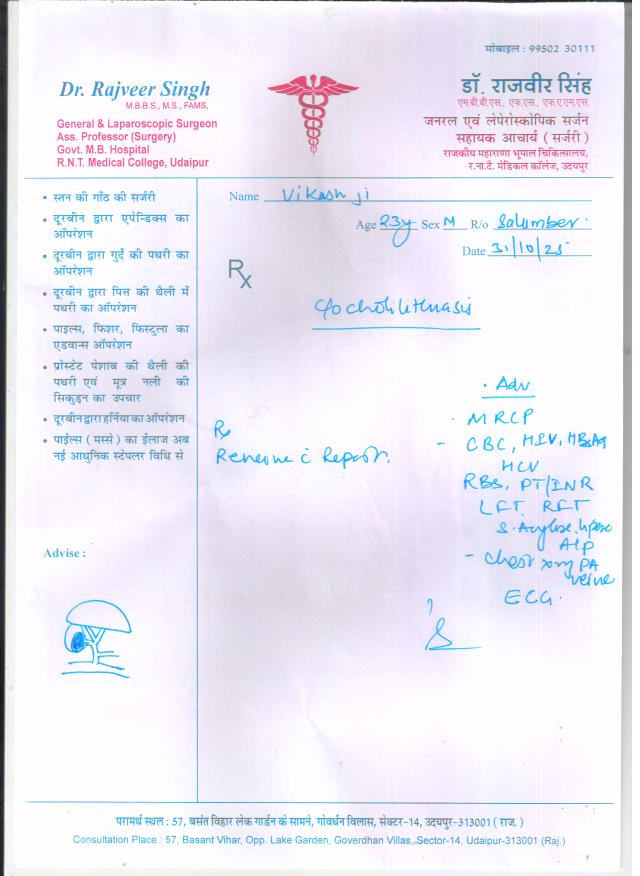 मोबाइल : 99502 30111
Dr. Rajveer Singh
M.B.B.S., M.S., FAMS,
General & Laparoscopic Surgeon
Ass. Professor (Surgery)
Govt. M.B. Hospital
R.N.T. Medical College, Udaipur
डॉ. राजवीर सिंह
एम.बी.बी.एस., एफ.एस., एफ.ए.एम.एस.
जनरल एवं लेपेरोस्कोपिक सर्जन
सहायक आचार्य ( सर्जरी )
राजकीय महाराणा भूपाल चिकित्सालय,
र.ना.टै. मेडिकल कॉलेज, उदयपुर
• स्तन की गाँठ की सर्जरी
• दूरबीन द्वारा एपेन्डिक्स का
ऑपरेशन
• दूरबीन द्वारा गुर्दे की पथरी का
ऑपरेशन
• दूरबीन द्वारा पित्त की थैली में
पथरी का ऑपरेशन
• पाइल्स, फिशर, फिस्टुला का
एडवान्स ऑपरेशन
• प्रोस्टेट पेशाब की थैली की
पथरी एवं मूत्र नली की
सिकुड़न का उपचार
• दूरबीन द्वारा हर्निया का ऑपरेशन
• पाईल्स ( मस्से ) का ईलाज अब
नई आधुनिक स्टेपलर विधि से
Advise :
Name Vikash ji
Age 23y Sex M R/o Salumber
Date 31/10/25
Rx
c/o cholilithiasis
Rx
Review c Report.
. Adv
- MRCP
- CBC, HIV, HBsAg
HCV
RBS, PT/INR
LFT RFT
S. Amylase, lipase
ALP
- Chest xray PA
view
ECG.
परामर्श स्थल : 57, बसंत विहार लेक गार्डन के सामने, गोवर्धन विलास, सेक्टर-14, उदयपुर-313001 ( राज. )
Consultation Place : 57, Basant Vihar, Opp. Lake Garden, Goverdhan Villas, Sector-14, Udaipur-313001 (Raj.)